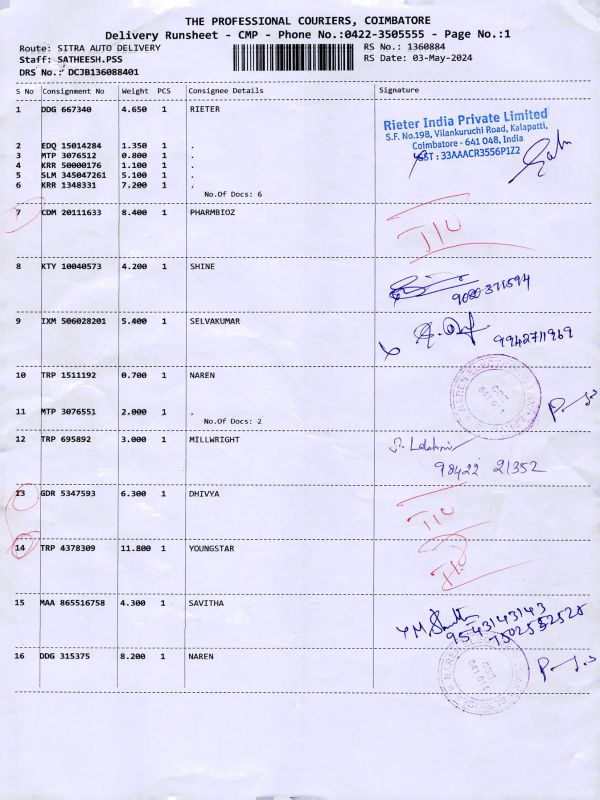 THE PROFESSIONAL COURIERS, COIMBATORE
Delivery Runsheet - CMP - Phone No.:0422-3505555 - Page No.:1
Route: SITRA AUTO DELIVERY
RS No.: 1360884
Staff: SATHEESH.PSS
RS Date: 03-May-2024
DRS No.: DCJB136088401
S No Consignment No Weight PCS Consignee Details Signature
1 DDG 667340 4.650 1 RIETER
Rieter India Private Limited
S.F. No.198, Vilankuruchi Road, Kalapatti,
Coimbatore - 641 048, India
GST : 33AAACR3556P1Z2
2 EDQ 15014284 1.350 1 .
3 MTP 3076512 0.800 1 .
4 KRR 50000176 1.100 1 .
5 SLM 345047261 5.100 1 .
6 KRR 1348331 7.200 1 .
No.Of Docs: 6
7 CDM 20111633 8.400 1 PHARMBIOZ
8 KTY 10040573 4.200 1 SHINE
9 IXM 506028201 5.400 1 SELVAKUMAR
9942711969
10 TRP 1511192 0.700 1 NAREN
11 MTP 3076551 2.000 1 .
No.Of Docs: 2
12 TRP 695892 3.000 1 MILLWRIGHT
98422 21352
13 GDR 5347593 6.300 1 DHIVYA
14 TRP 4378309 11.800 1 YOUNGSTAR
15 MAA 865516758 4.300 1 SAVITHA
9543143143
7502552525
16 DDG 315375 8.200 1 NAREN